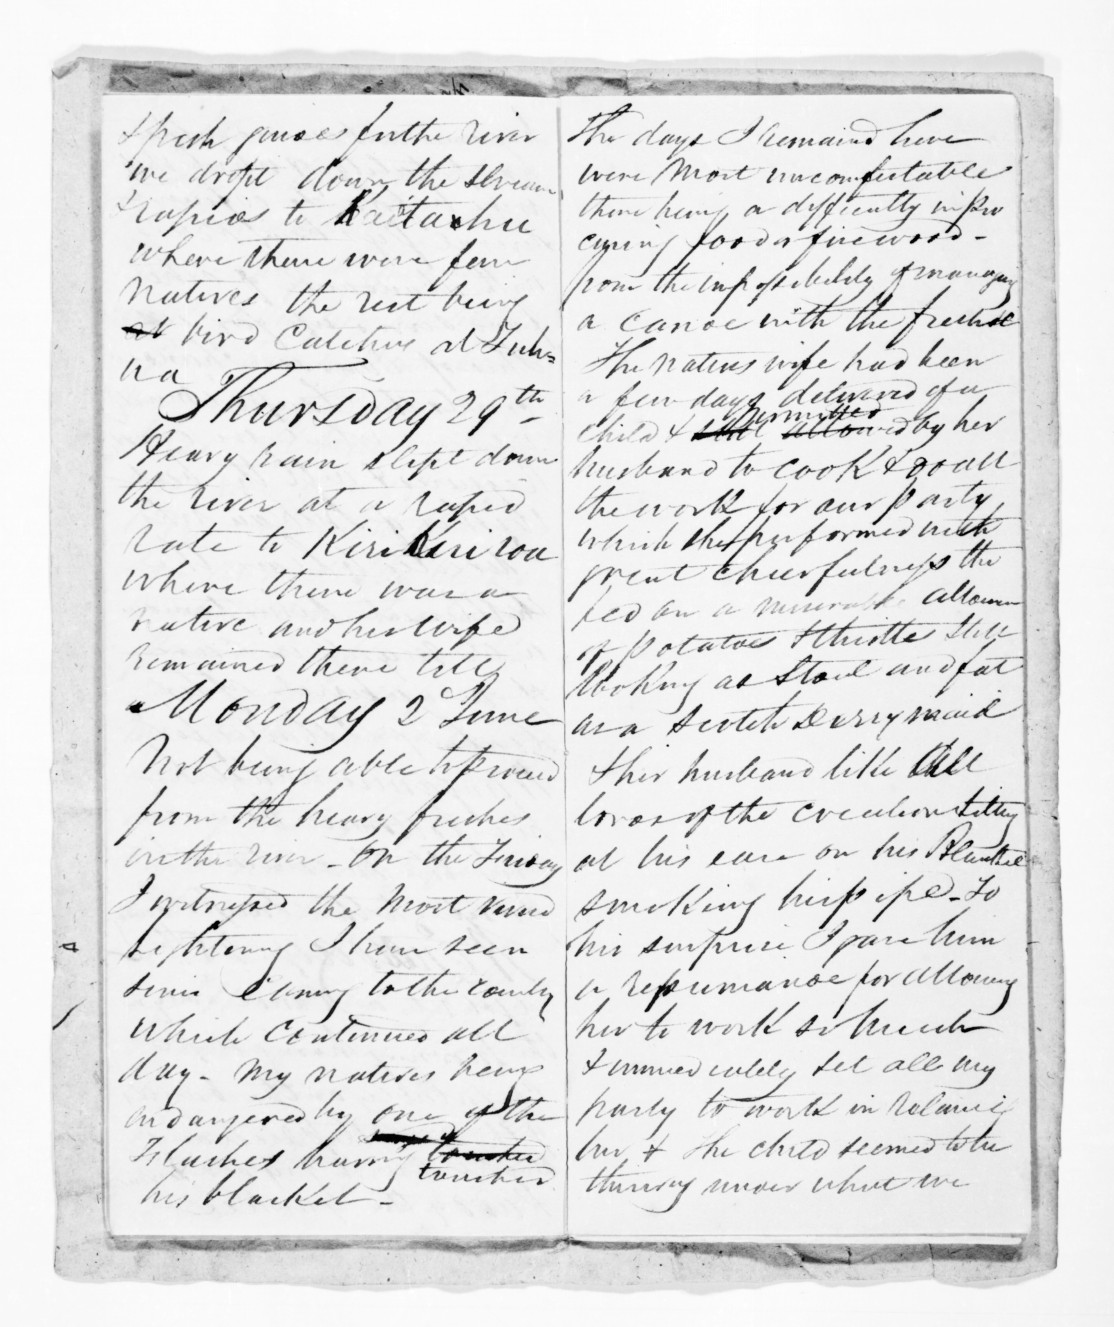 & fresh
we dropt down the stream
rapids to
where there were few
natives the rest being
at bird catching at Tuh=
ua
Thursday 29th
Heavy rain slipt down
the river at a rapid
rate to Kiri Kiri roa
where there was a
native and his wife
remained there till
Monday 2 June
Not being able to proceed
from the heavy freshes
in the river - On the
I witnessed the most vivid
lightening I have seen
since coming to the country
which continued all
day - My natives being
endangered by one of the
flashes having touched
touched
his blanket -
The days I remained here
were most uncomfortable
there being a difficulty in pro
curing food or firewood -
from the impossibility of managing
a canoe with the freshes
The natives wife had been
a few days delivered of a
permitted
child & allowed by her
husband to cook & do all
the work for our party
which she performed with
great cheerfulness the
fed on a miserable allowance
of potatoes & thistles still
looking as and fat
as a Scotch Dairy maid
& her husband like all
lords of the creation sitting
at his ease on his Blanket
smoking his pipe - To
his surprise I gave him
a for allowing
her to work so much
& immediately set all my
party to work in
her, & the child seemed to be
thriving under what we